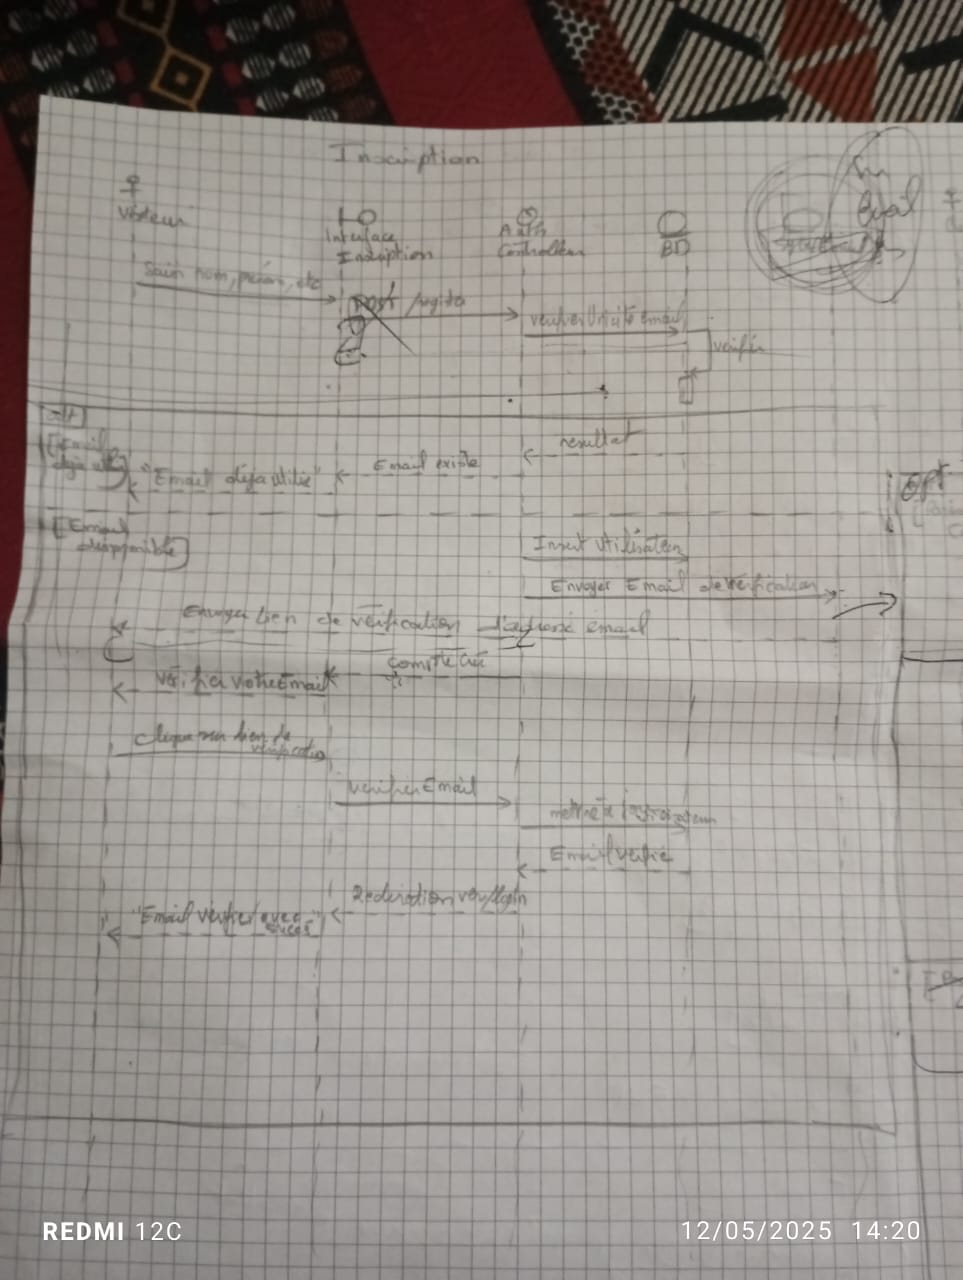 Inscription
Visiteur
Interface
Inscription
Auth
Controlleur
BD
Saisir nom, prénom, etc
Post /regiter
verifier Unicité email
verifier
alt
[Email
déjà utilisé]
resultat
Email existe
"Email déja utilisé"
Opt
[Email
disponible]
Insert Utilisateur
Envoyer Email de verification
Envoyer lien de vérification
email
compte créé
Vérifier votre Email
clique sur lien de
vérification
verifier Email
mettre à jour
Email verifié
Redirection vers/login
"Email vérifié avec
succès"
REDMI 12C
12/05/2025 14:20